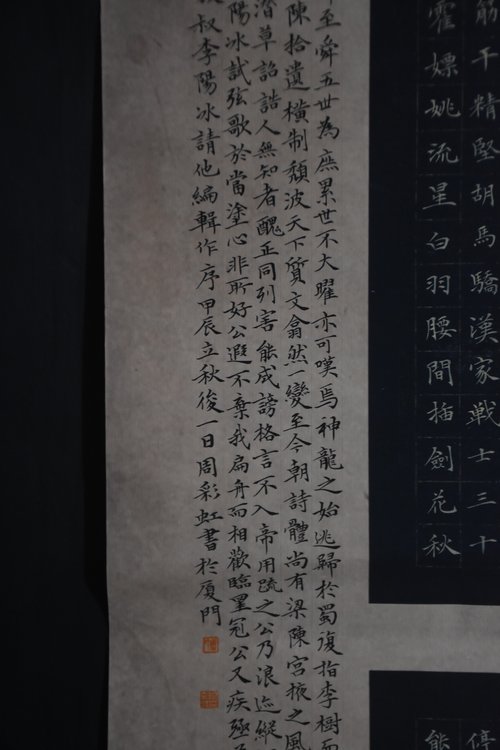 筋干精堅胡馬驕漢家戦士三十
霍嫖姚流星白羽腰間插劍花秋
至舜五世為庶累世不大曜亦可嘆焉神龍之始逃歸於蜀復指李樹而
陳拾遺橫制頹波天下質文翕然一變至今朝詩體尚有梁陳宮掖之風
潛草詔誥人無知者醜正同列害能成謗格言不入帝用疏之公乃浪迹縱
陽冰試弦歌於當塗心非所好公遐不棄我扁舟而相歡臨罣冠公又疾殛
叔李陽冰請他編輯作序甲辰立秋後一日周彩虹書於厦門